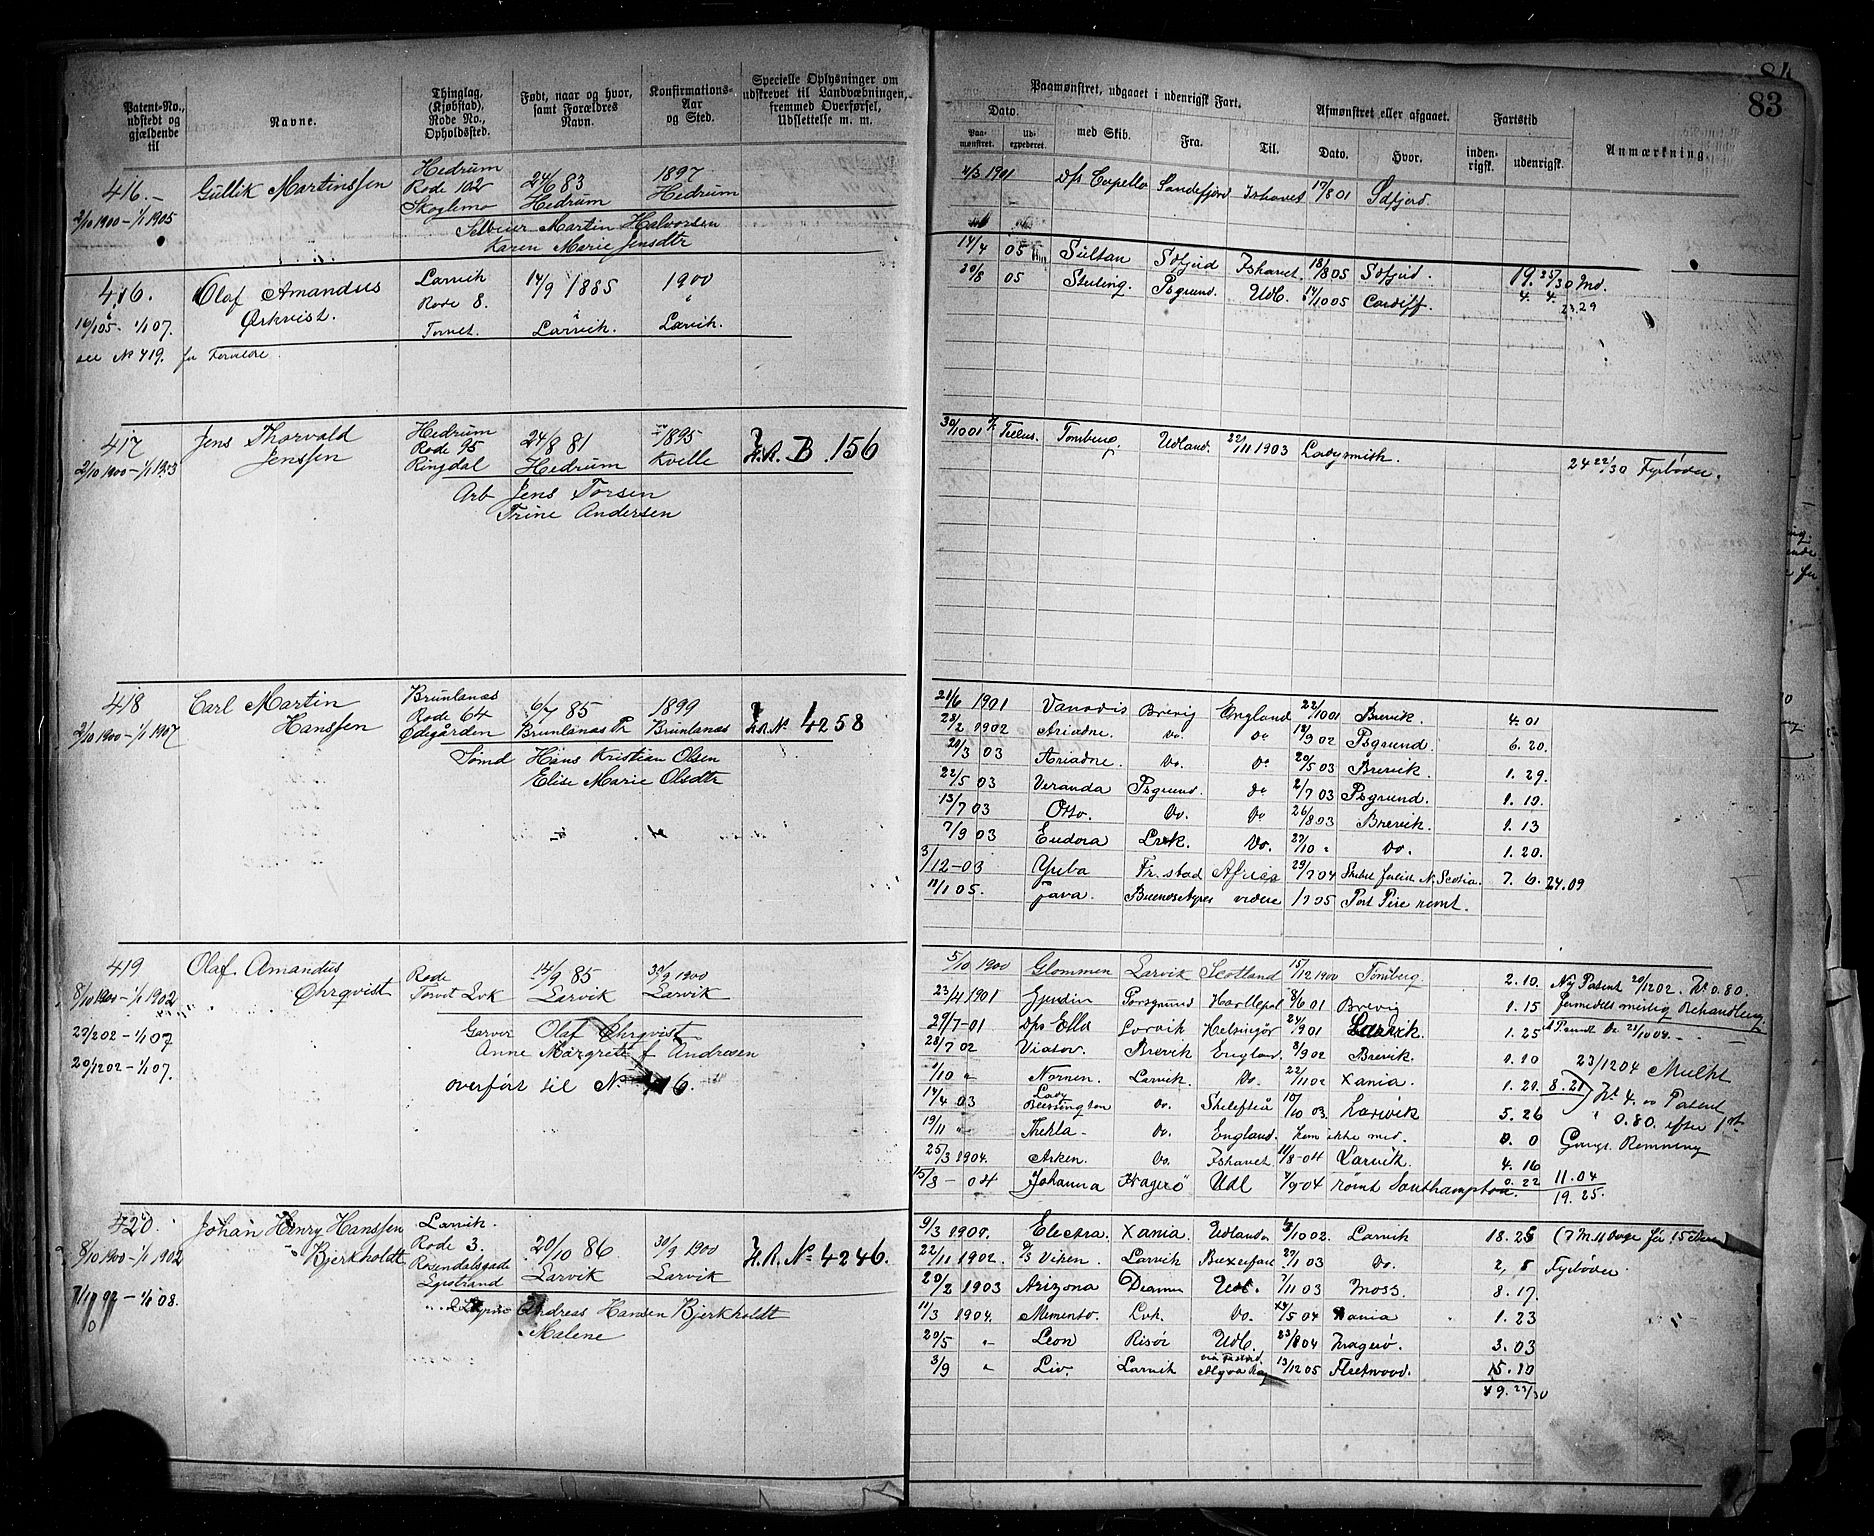 84
83
Patent-No., udstedt og gjældende til
Navne.
Thinglag, (Kjøbstad), Rode No., Opholdssted.
Født, naar og hvor, samt Forældres Navn.
Konfirmations-Aar og Sted.
Specielle Oplysninger om udskrevet til Landværnningen, fremmed Overførsel, Udslettelse m. m.
Paamønstret, udgaaet i udenrigsk Fart.
Dato.
Paamønstret.
Udexpederet.
med Skib.
Fra.
Til.
Afmønstret eller afgaaet.
Dato.
Hvor.
Fartstid
indenrigsk.
udenrigsk.
Anmærkning.
416. Gullik Martinssen Hedrum Rode 102 Skoglimo 24/6 83 Hedrum 1897 Hedrum
2/10 1900 - 1/1 1905
Selveier Martin Halvorsen
Karen Marie Jensdtr
4/3 1901 D/s Capella Sandefjord Ishavet 17/8 01 Sdfjord
416. Olaf Amandus Ørkvist. Larvik Rode 8. Torvet 14/9 1885 Larvik. 1900 Larvik.
16/1 05 - 1/1 07.
see No 419. for Forældre
14/4 05 Sultan Sdfjord Ishavet 18/8 05 Sdfjord. 19. 25/30 Md.
29/8 05 Sterling. Psgrund. Udl. 14/10 05 Cardiff 4. 4.
23.29
417 Jens Thorvald Jenssen Hedrum Rode 95 Ringdal 24/8 81 Hedrum 1895 Kvelle H.R. B. 156
2/10 1900 - 1/1 1903
Arb Jens Torsen
Trine Andersen
30/10 01 Tellus. Tønsberg Udland. 22/11 1903 Ladysmith. 24 22/30 Fyrbøder.
418 Carl Martin Hanssen Brunlanæs Rode 64 Ødegården 6/7 85 Brunlanæs Pr 1899 Brunlanæs H.R. No 4258
2/10 1900 - 1/1 1907
Tømd Hans Kristian Olsen
Elise Marie Olsdtr
21/6 1901 Vanadis Brevig England 22/10 01 Brevik. 4. 01
28/2 1902 Ariadne. Do Do 12/9 02 Psgrund. 6. 20.
20/3 03 Ariadne. Do. Do 20/5 03 Brevik. 1. 29.
22/5 03 Veranda Psgrund. Do 2/7 03 Psgrund. 1. 10.
13/7 03 Otto. Do. Do 26/8 03 Brevik. 1. 13
7/9 03 Eudora Lvk. Do. 27/10 " Do. 1. 20.
3/12-03 Yuba Fr.stad Africa 29/7 04 N. Scotia. 7. 6. 24.09
11/1 05. Java. Buenos Ayres videre 1/7 05 Port Pire rømt.
419 Olaf Amandus Ehrqvist Rode Torvet Lvk 14/9 85 Larvik 30/9 1900 Larvik
8/10 1900 - 1/1 1902
22/2 02 - 1/1 07
20/12 02 - 1/1 07.
Garver Olaf Ehrqvist
Anne Margrete f Andresen
overført til No 416.
5/10 1900 Glommen Larvik Scotland 15/12 1900 Tønsberg 2. 10. Ny Patent 20/12 02. Kr 0.80.
23/4 1901 Gjendin Porsgrund Hartlepol 8/6 01 Brevig 1. 15 formedelst mislig Behandling
29/7-01 D/s Ella Larvik Helsingør 24/9 01 Larvik 1. 25
28/7 02 Viator. Brevik England 8/9 02 Brevik. 1. 10 23/12 04 Mulkt
1/10 " Nornen. Larvik Do. 22/11 02 Xania. 1. 20. 8. 21 Kr 4. Patent
14/4 03 Lady Do. Skelefteå 10/10 03. Larvik 5. 26 0.80. efter 1ste
19/11 " Thekla - Do. England. kom ikke med. 0. 0 Gangs Rømning
25/3 1904. Arken Do. Ishavet 11/8-04 Larvik. 4. 16
15/8 - 04 Johanna Kragerø Udl 7/9 04 rømt Southampton. 0. 22 11.04
19. 25.
420. Johan Henry Hanssen Bjerkholdt Larvik. Rode 3. Rosendalsgade Lystrand 20/10 86. Larvik 30/9 1900 Larvik H.R. No 4246.
8/10 1900 - 1/1 1902
7/11 02 - 1/1 08.
Andreas Hansen Bjerkholdt
Malene
9/3 1900. Electra. Xania. Udlandet 10 02. Larvik 18. 25
22/11 1902. D/S Viken Larvik 29/1 03 Do. 2, 8 Fyrbøder
20/2 1903 Arizona Dramn Udl. 7/11 03 Moss. 8. 17.
11/3 1904. Memento. Lvk. Do. 5 04 Xania 1. 23
20/5 " Leon Risør Udl. 23/8 04 Kragerø. 3. 03
3/9 " Liv. Larvik Algoa Bay 13/12 05 Fleetwood. 15. 10
49. 23/30